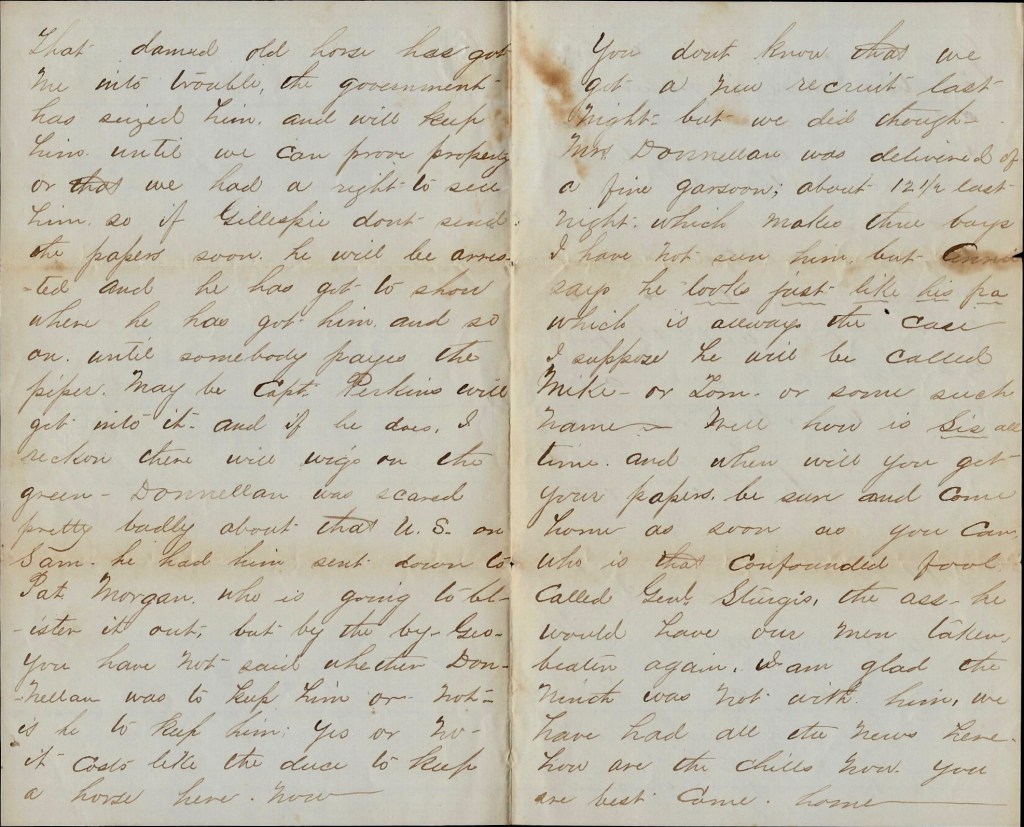 That damed old horse has got
me into trouble, the government
has seized him. and will keep
him. until we can prove property
or that we had a right to sell
him. so if Gillespie dont send
the papers soon. he will be arres-
-ted and he has got to show
where he has got him. and so
on. until somebody payes the
piper. May be Capt. Perkins will
get into it. and if he does, I
reckon there will wigs on the
green - Donnellan was scared
pretty badly about that U. S. on
Sam. he had him sent down to
Pat Morgan. who is going to bl-
-ister it out, but by the by - Geo-
you have not said whether Don-
-nellan was to keep him or not -
is he to keep him: yes or no -
it costs like the duce to keep
a horse here. now
You dont know that we
got a new recruit last
night - but we did though -
Mrs Donnellan was delivered of
a fine garsoon; about 12 1/2 last
night. which makes three boys
I have not seen him, but Annie
says he looks just like his pa
which is allways the case
I suppose he will be called
Mike - or Tom. or some such
name - Well how is Sis all
time. and when will you get
your papers. be sure and come
home as soon as you can,
who is that confounded fool
called Genl. Sturgis, the ass - he
would have our men taken,
beaten again. I am glad the
Ninth was not with him, we
have had all the news here.
how are the chills now. you
are best come. home